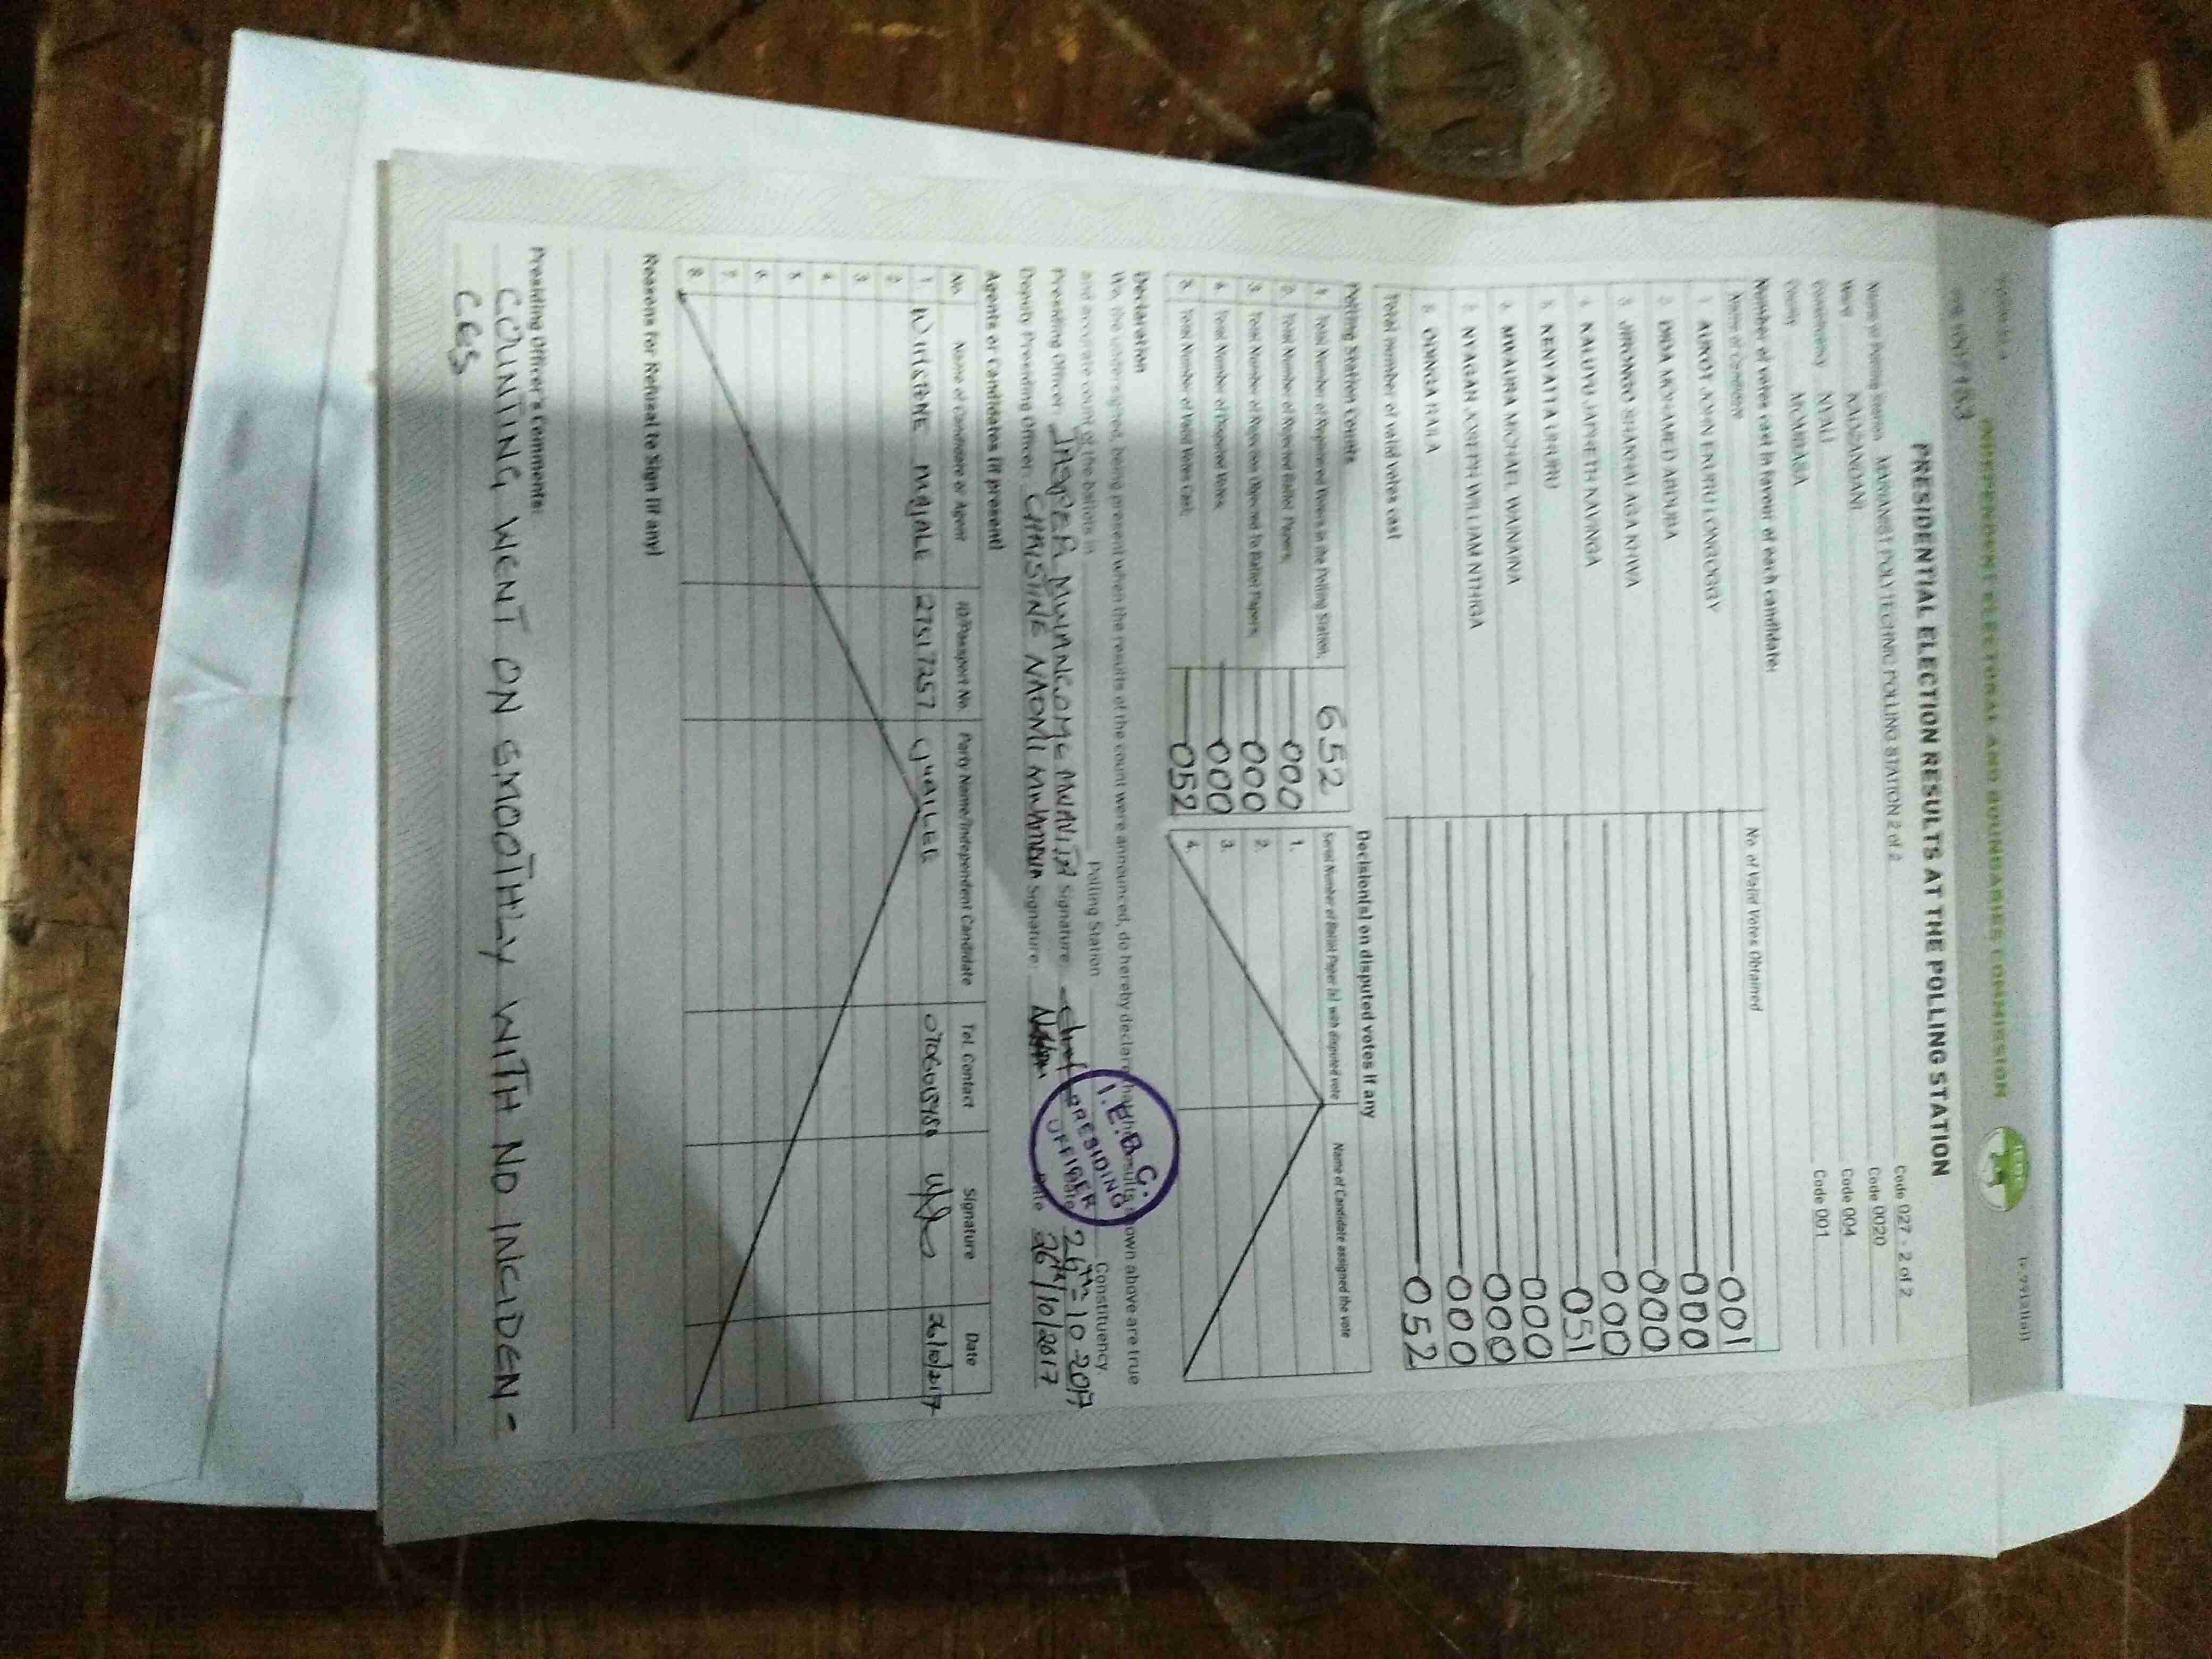 INDEPENDENT ELECTORAL AND BOUNDARIES COMMISSION
PRESIDENTIAL ELECTION RESULTS AT THE POLLING STATION
Name of Polling Station POLYTECHNIC POLLING STATION 2 of 2 Code 027 - 2 of 2
Ward KADZANDANI Code 0020
Constituency NYALI Code 004
County MOMBASA Code 001
Number of votes cast in favor of each candidate:
Name of Candidate No. of Valid Votes Obtained
1. AUKOT JOHN EKURU LONGOGGY 001
2. DIDA MOHAMED ABDUBA 000
3. JIRONGO SHAKHALAGA KHWA 000
4. KALUYU JAPHETH KAVINGA 000
5. KENYATTA UHURU 051
6. MWAURA MICHAEL WAINAINA 000
7. NYAGAH JOSEPH WILLIAM NTHIGA 000
8. ODINGA RAILA 000
Total number of valid votes cast 052
Polling Station Counts
1. Total Number of Registered Voters in the Polling Station; 652
2. Total Number of Rejected Ballot Papers; 000
3. Total Number of Rejection Objected To Ballot Papers; 000
4. Total Number of Disputed Votes; 000
5. Total Number of Valid Votes Cast; 052
Decision(s) on disputed votes if any
Serial Number of Ballot Paper (s) with disputed vote Name of Candidate assigned the vote
1.
2.
3.
4.
Declaration
We, the undersigned, being present when the results of the count were announced, do hereby declare that the results shown above are true
and accurate count of the ballots in Polling Station Constituency.
Presiding Officer: Signature: Date 26th-10-2017
Deputy Presiding Officer: CHRISTINE NAOMI Signature: Date 26th/10/2017
I.E.B.C.
PRESIDING
OFFICER
Agents or Candidates (if present)
No. Name of Candidate or Agent ID/Passport No. Party Name/Independent Candidate Tel. Contact Signature Date
1. MAJALE 27517257 26/10/2017
2.
3.
4.
5.
6.
7.
8.
Reasons for Refusal to Sign (if any)
Presiding Officer's Comments:
COUNTING WENT ON SMOOTHLY WITH NO INCIDEN-
CES